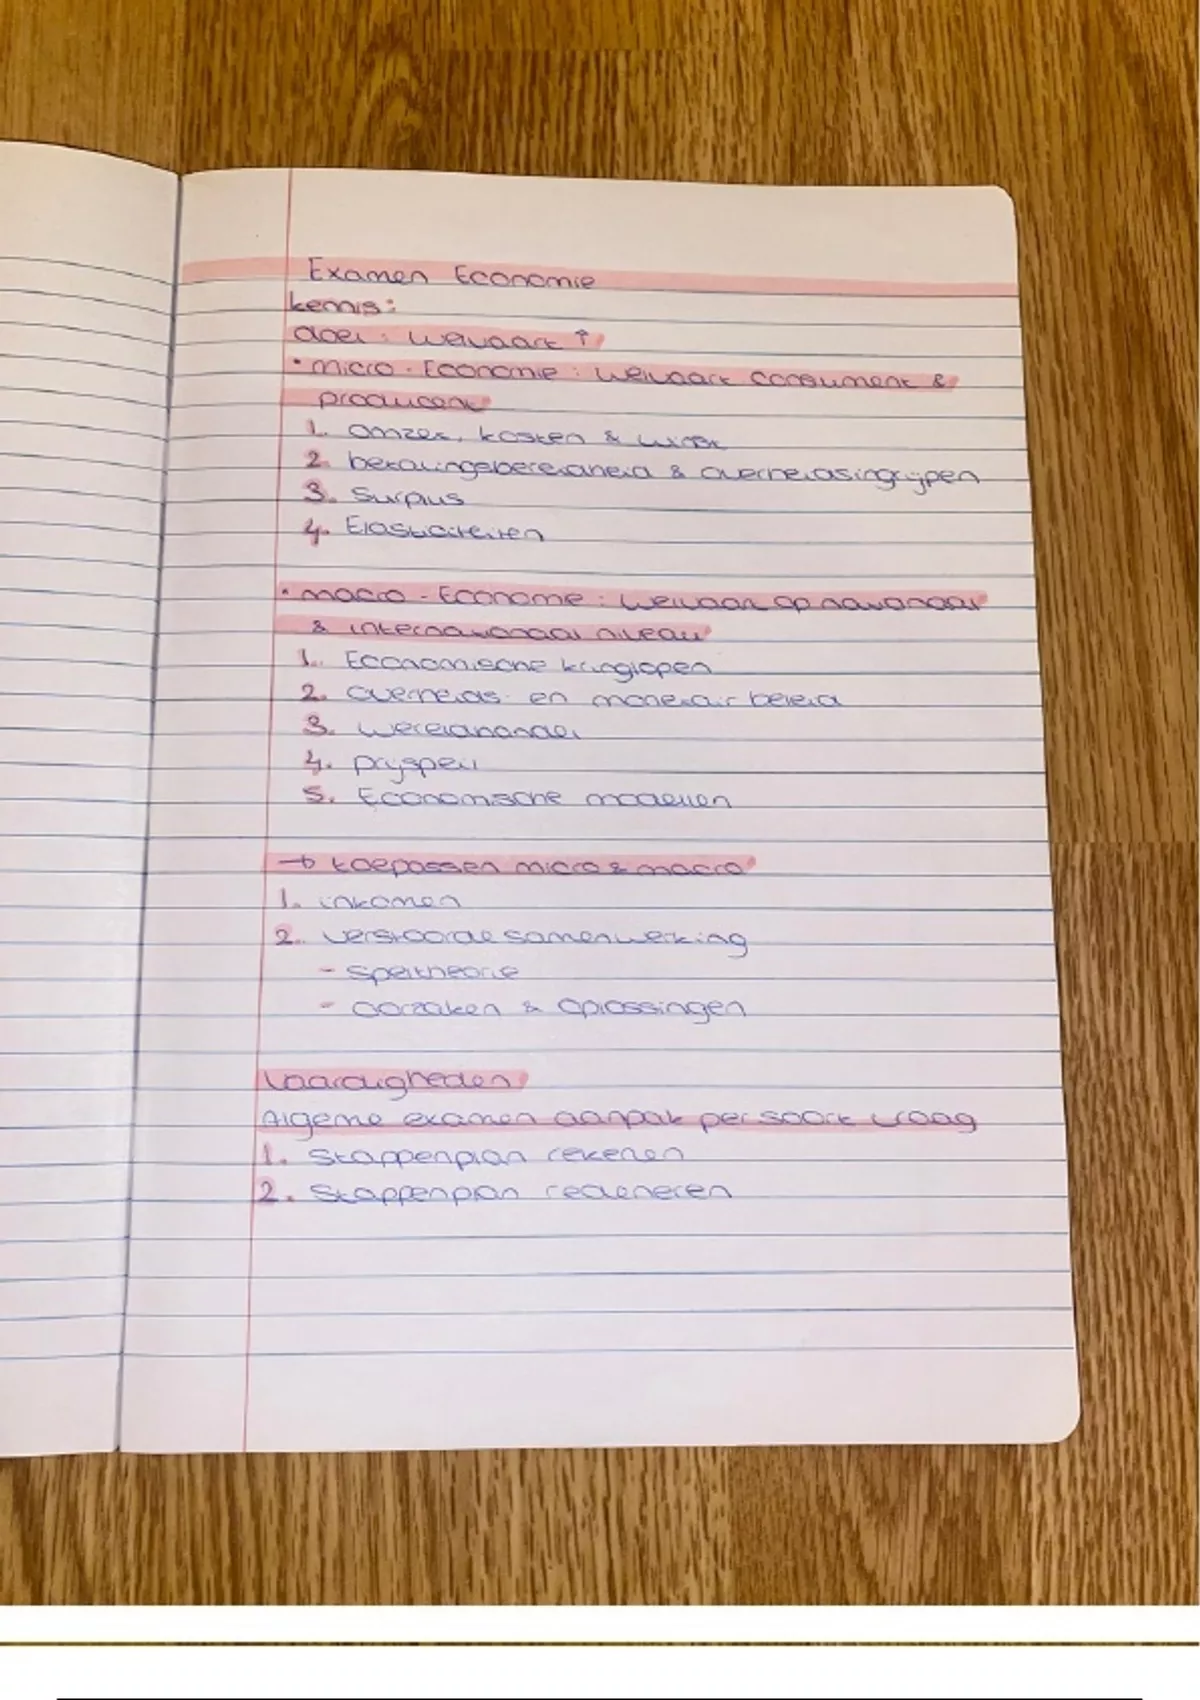 Examen Economie
kennis:
doel: welvaart ↑
• micro-Economie: welvaart consument &
producent
1. omzet, kosten & winst
2. betalingsbereidheid & overheidsingrijpen
3. Surplus
4. Elasticiteiten
• macro-Economie: welvaart op nationaal
& internationaal niveau
1. Economische kringlopen
2. overheids- en monetair beleid
3. wereldhandel
4. prijspeil
5. Economische modellen
→ toepassen micro & macro
1. inkomen
2. verstoorde samenwerking
- speltheorie
- oorzaken & oplossingen
Vaardigheden
Algeme examen aanpak per soort vraag
1. Stappenplan rekenen
2. Stappenplan redeneren